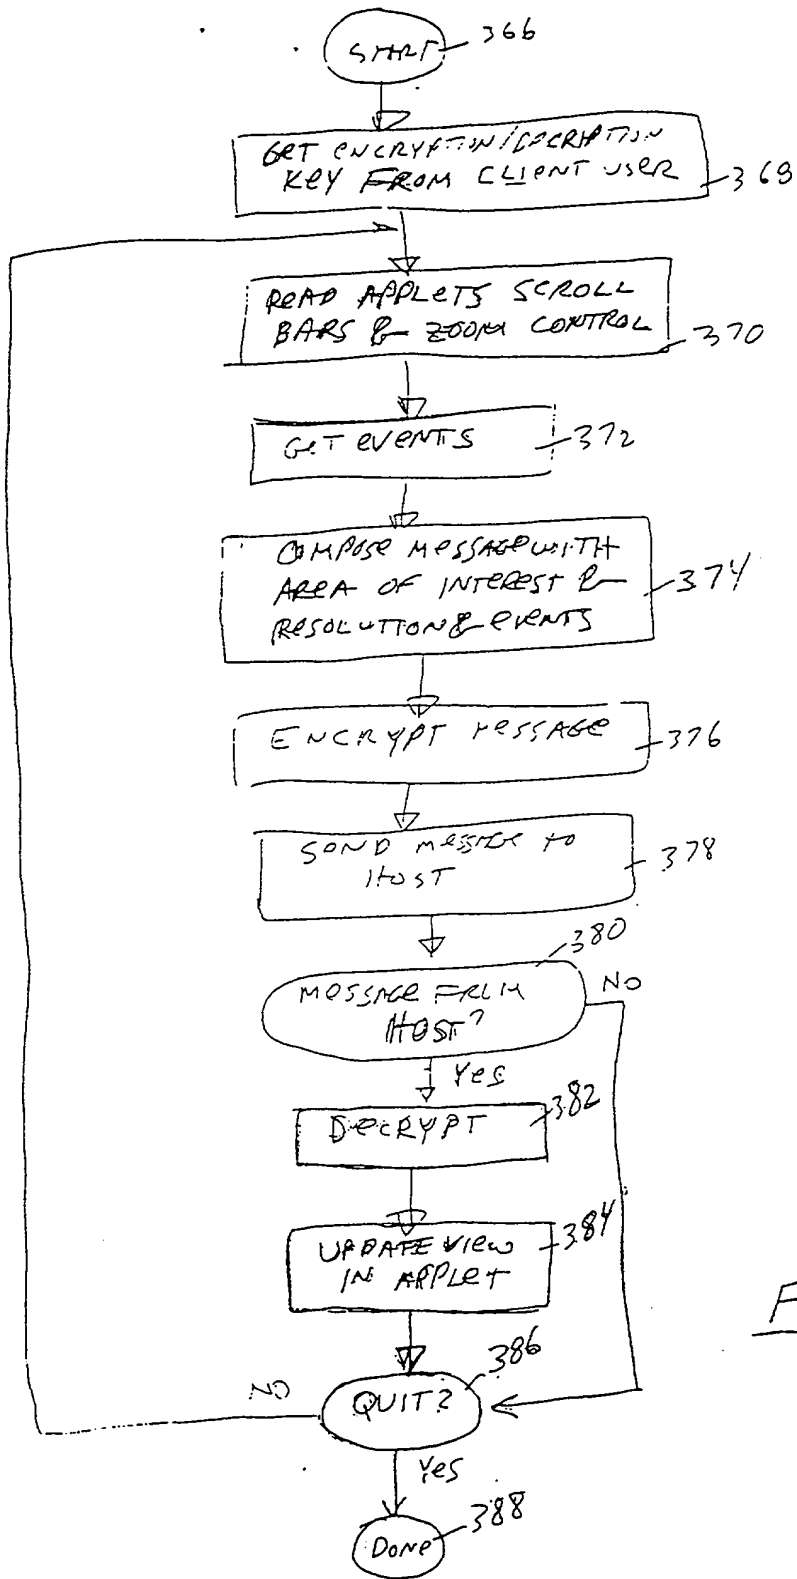 START 366
GET ENCRYPTION/DECRYPTION
KEY FROM CLIENT USER 368
READ APPLETS SCROLL
BARS & ZOOM CONTROL 370
GET EVENTS 372
COMPOSE MESSAGE WITH
AREA OF INTEREST &
RESOLUTION & EVENTS 374
ENCRYPT MESSAGE 376
SEND MESSAGE TO
HOST 378
380
MESSAGE FROM
HOST? NO
Yes
DECRYPT 382
UPDATE VIEW
IN APPLET 384
F
386
NO QUIT?
Yes
DONE 388